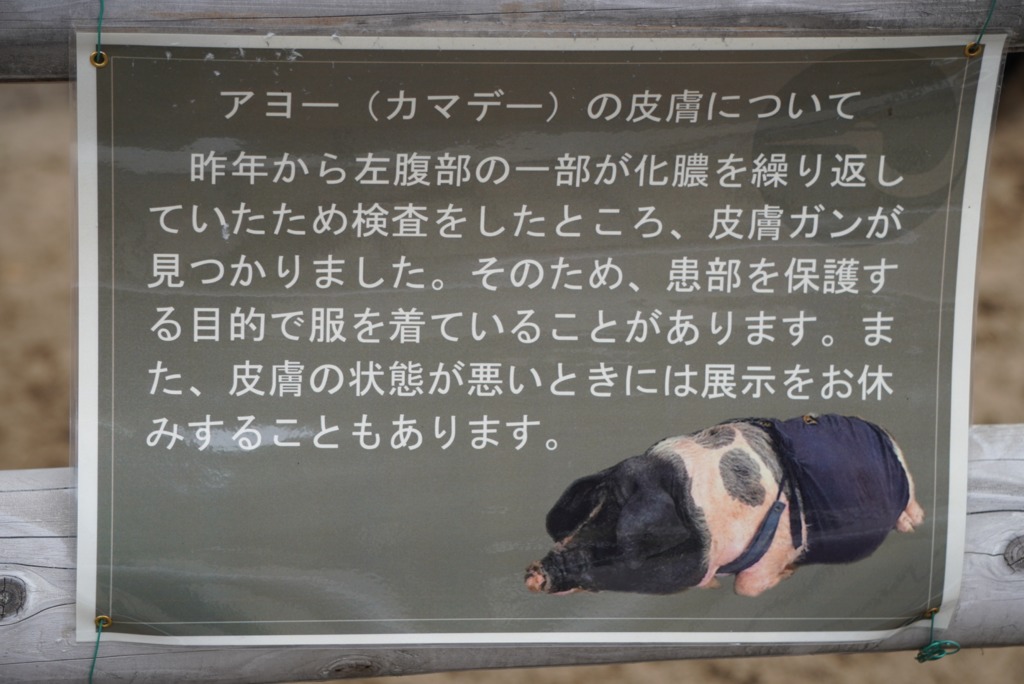 アヨー（カマデー）の皮膚について
昨年から左腹部の一部が化膿を繰り返し
ていたため検査をしたところ、皮膚ガンが
見つかりました。そのため、患部を保護す
る目的で服を着ていることがあります。ま
た、皮膚の状態が悪いときには展示をお休
みすることもあります。